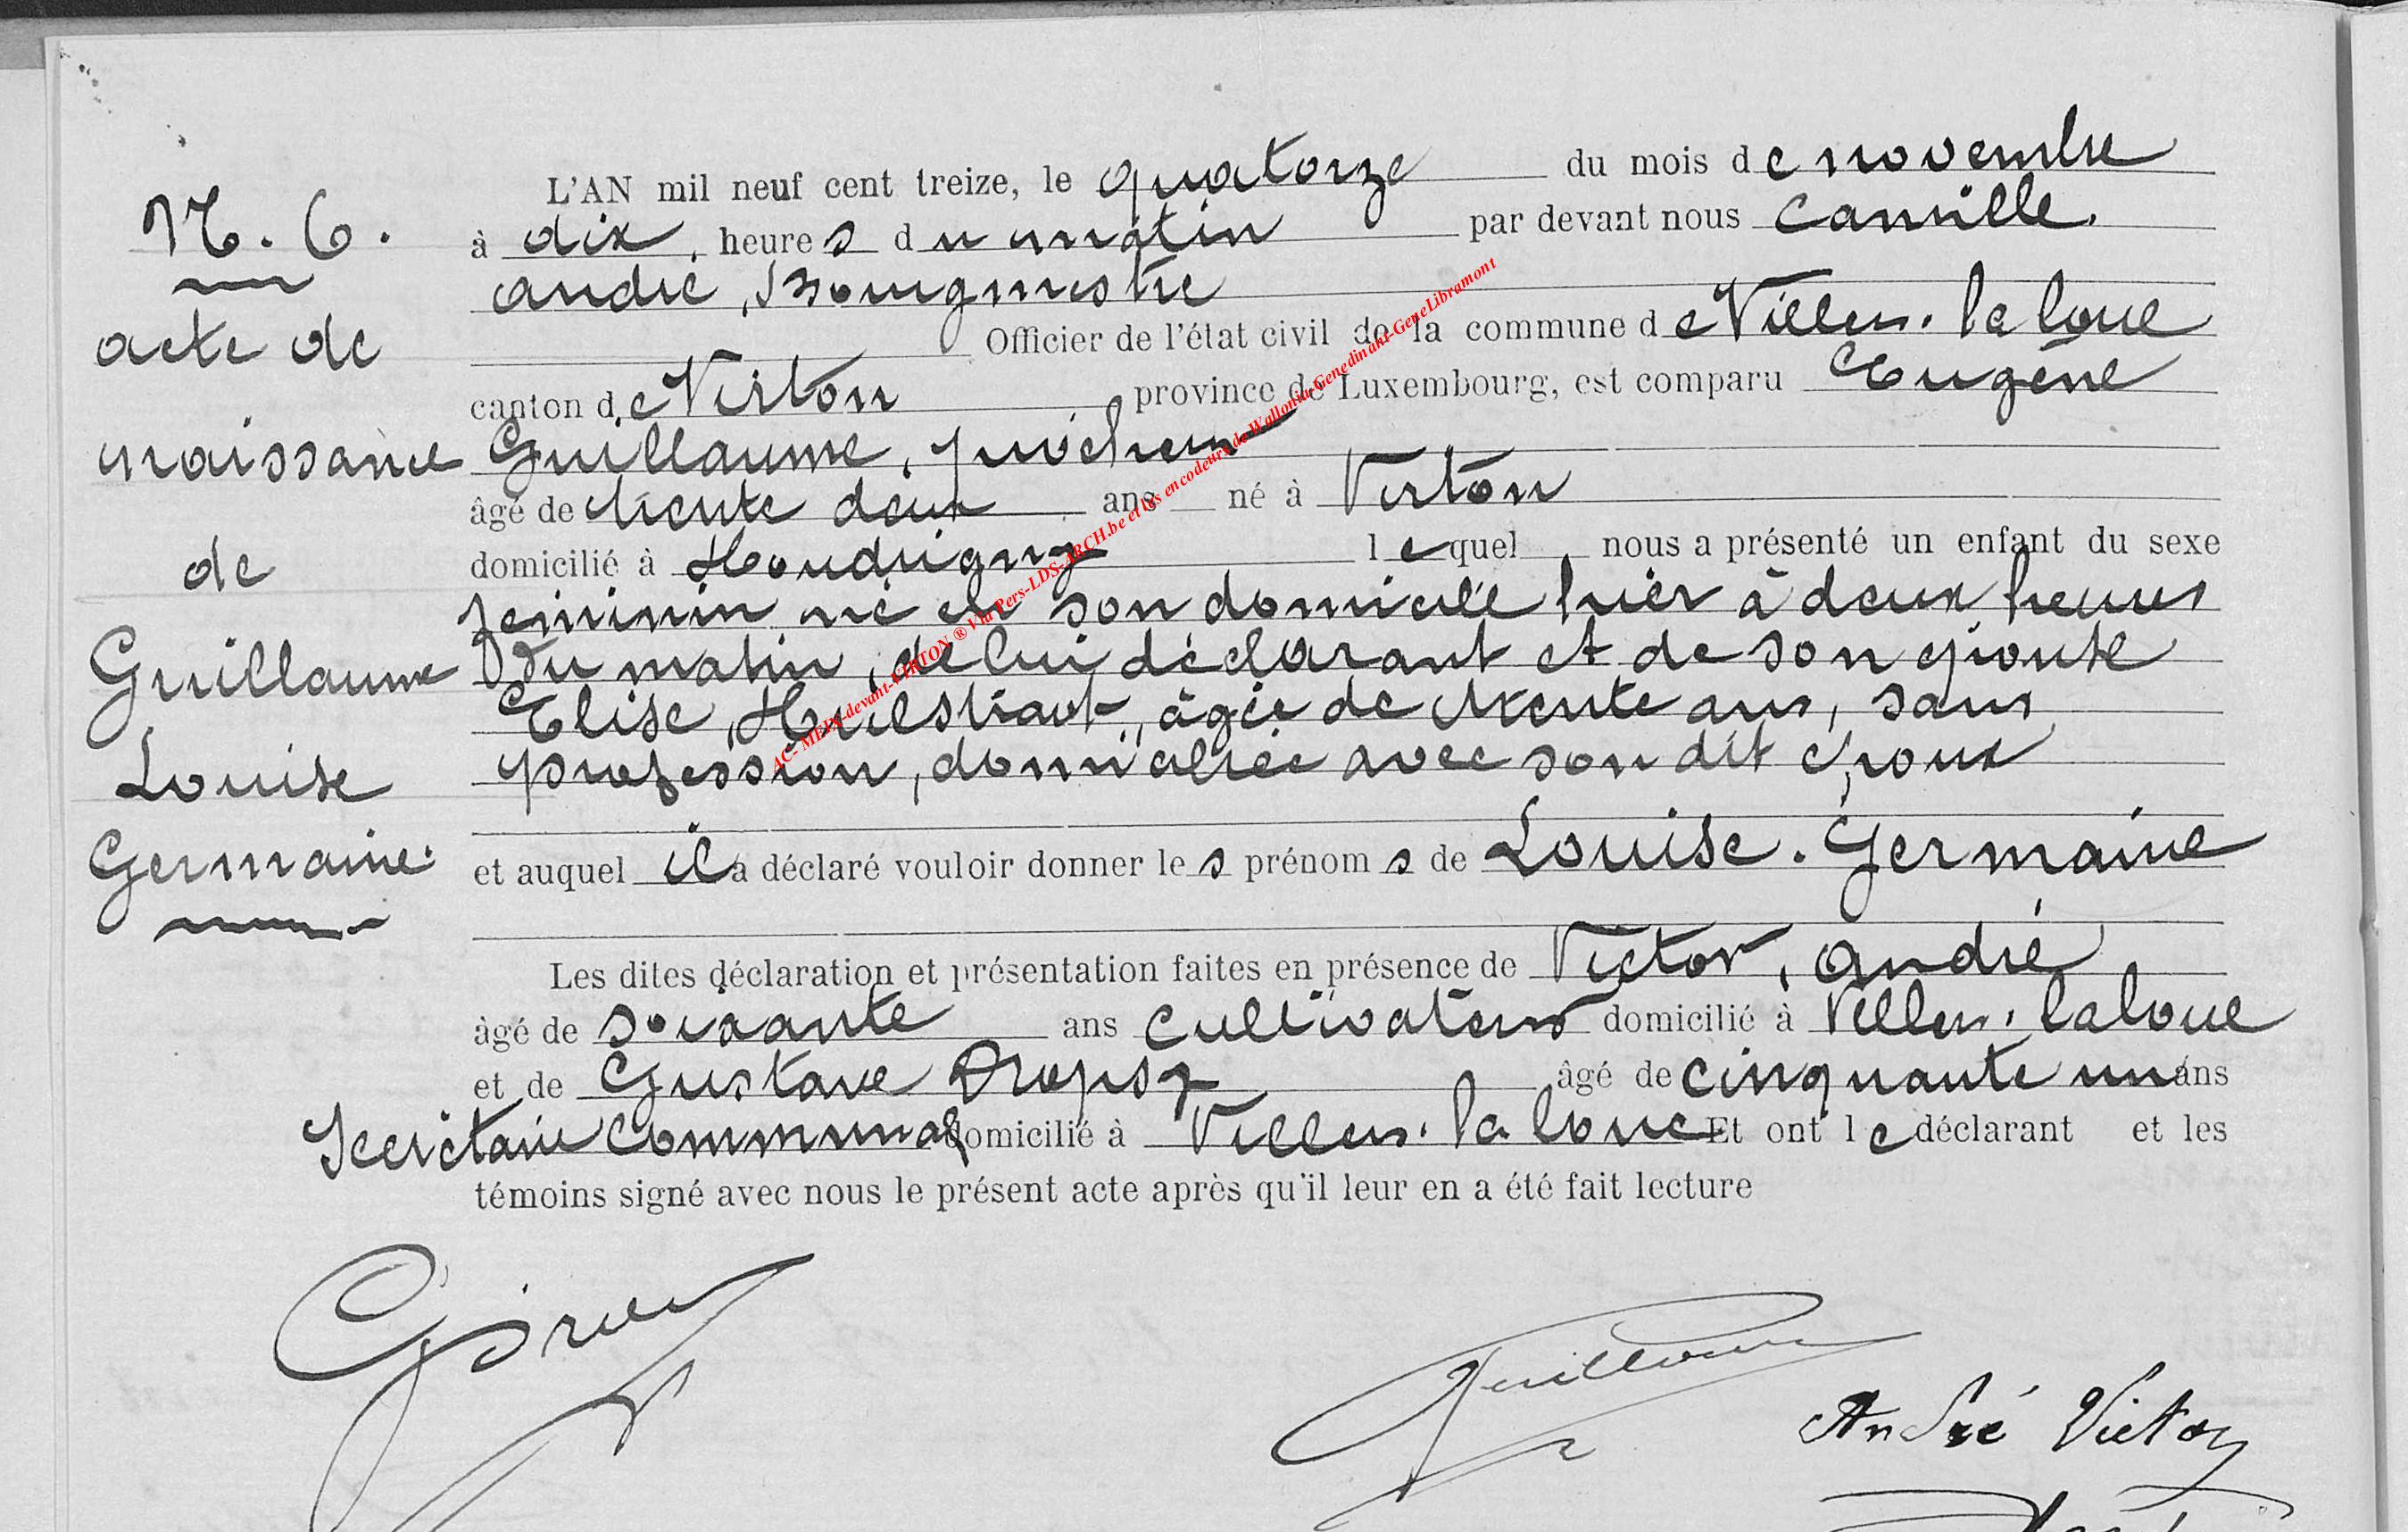 L'AN mil neuf cent treize, le quatorze du mois de novembre
N. 6.
à dix, heures du matin par devant nous Camille,
andré, Bourgmestre
acte de
Officier de l'état civil de la commune de Villers-la-loue
canton de Virton province de Luxembourg, est comparu Eugène
naissance
Guillaume, piocheur
âgé de trente deux ans né à Virton
de
domicilié à Houdrigny lequel nous a présenté un enfant du sexe
féminin né en son domicile hier à deux heures
Guillaume
du matin, de lui déclarant et de son épouse
Elise, âgée de trente ans, sans
Louise
profession, domiciliée avec son dit époux
Germaine
et auquel il a déclaré vouloir donner les prénoms de Louise. Germaine
Les dites déclaration et présentation faites en présence de Victor, andré
âgé de soixante ans cultivateur domicilié à Villers-la loue
et de Gustave Dropsy âgé de cinquante un ans
Secrétaire communal domicilié à Villers-la loue Et ont le déclarant et les
témoins signé avec nous le présent acte après qu'il leur en a été fait lecture
Guillaume
André Victor
AC - MEIX-devant-VIRTON ® Via Pers-LDS-ARCH.be et les encodeurs de Wallonia-Genedinant-GeneLibramont